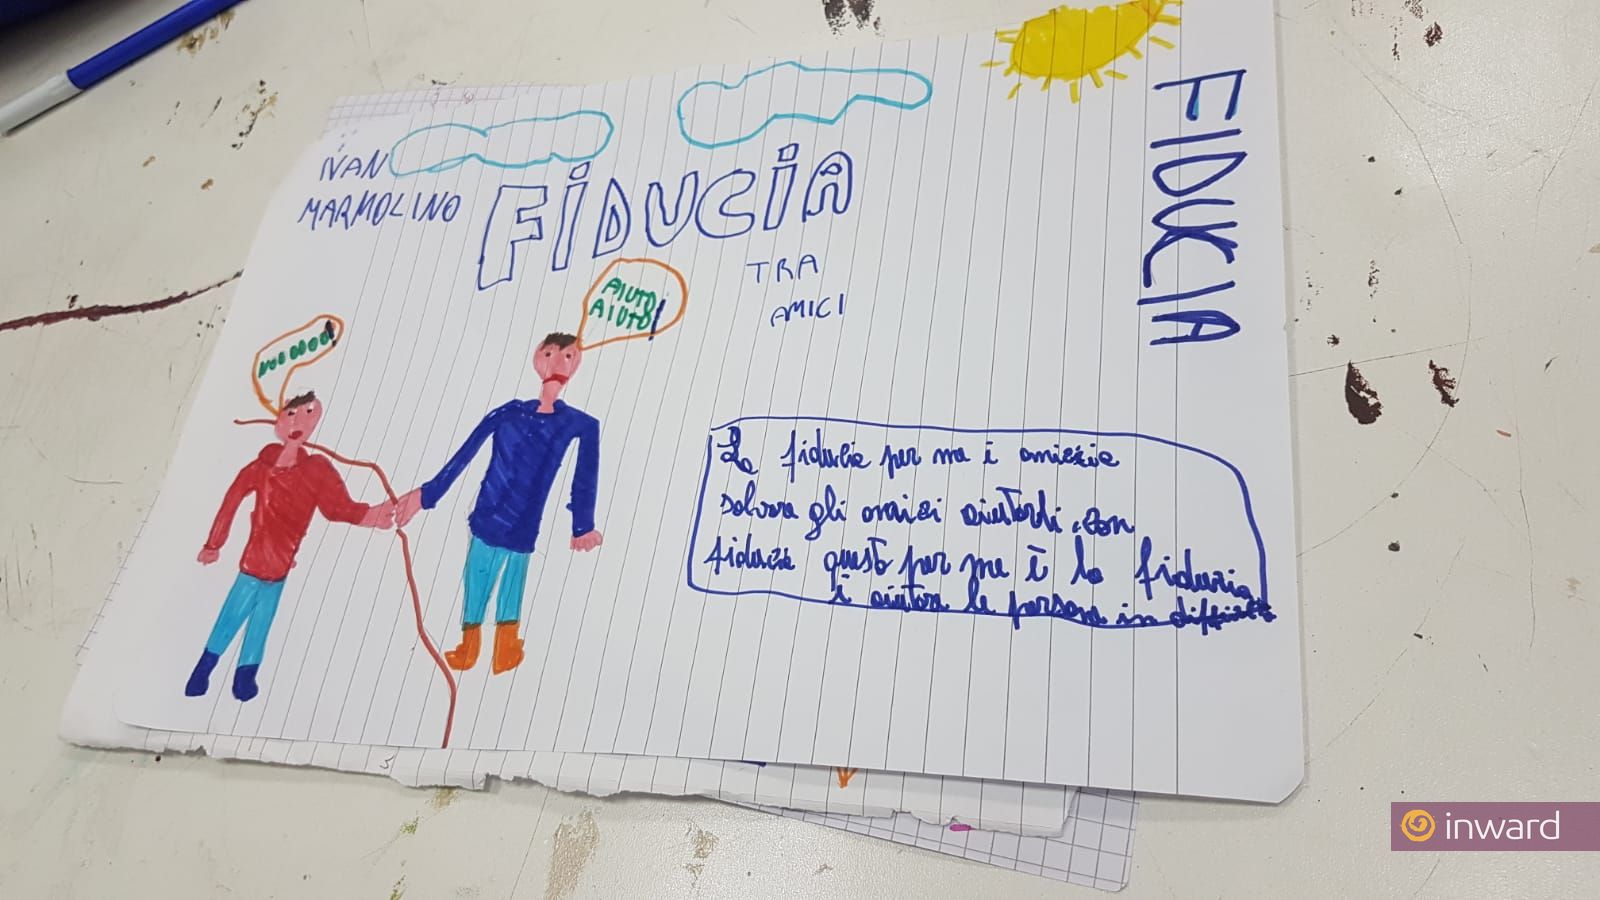 IVAN
MARMOLINO
FIDUCIA
TRA
AMICI
FIDUCIA
AIUTO
AIUTO!
La fiducia per me è amicizia
salvare gli amici aiutardi con
fiducia questo per me è la fiducia
è aiutare le persone in
inward